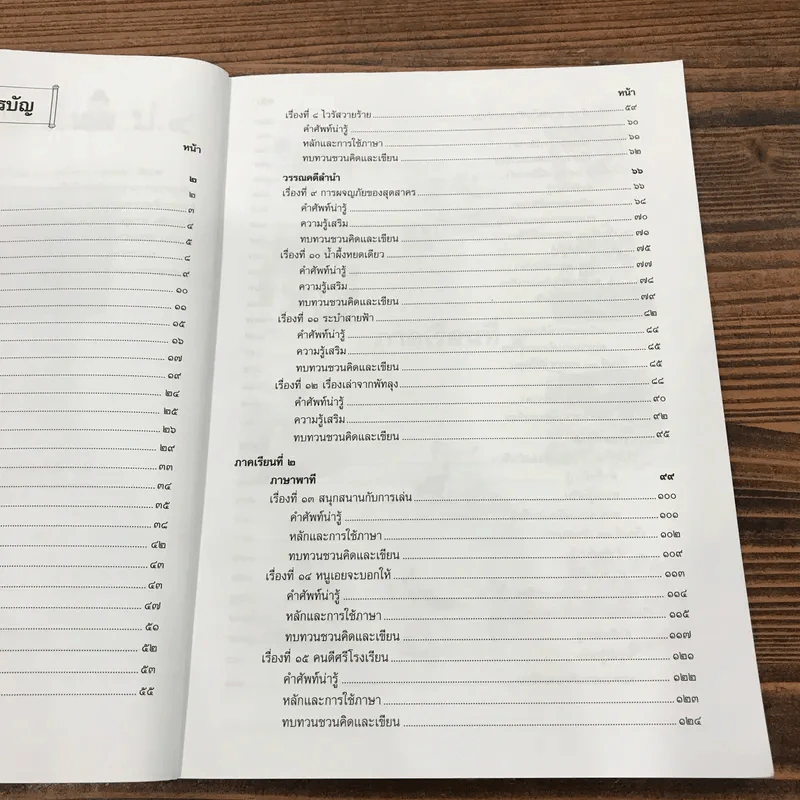 รบัญ
หน้า
๒
๒
๓
๔
๕
๘
๙
๑๐
๑๑
๑๕
๑๖
๑๗
๑๙
๒๔
๒๕
๒๖
๒๙
๓๓
๓๔
๓๕
๓๘
๔๒
๔๓
๔๓
๔๗
๕๑
๕๒
๕๓
๕๕
หน้า
เรื่องที่ ๘ ไวรัสวายร้าย ๕๙
คำศัพท์น่ารู้ ๖๐
หลักและการใช้ภาษา ๖๑
ทบทวนชวนคิดและเขียน ๖๒
วรรณคดีลำนำ ๖๖
เรื่องที่ ๙ การผจญภัยของสุดสาคร ๖๖
คำศัพท์น่ารู้ ๖๘
ความรู้เสริม ๗๐
ทบทวนชวนคิดและเขียน ๗๑
เรื่องที่ ๑๐ น้ำผึ้งหยดเดียว ๗๕
คำศัพท์น่ารู้ ๗๗
ความรู้เสริม ๗๘
ทบทวนชวนคิดและเขียน ๗๙
เรื่องที่ ๑๑ ระบำสายฟ้า ๘๒
คำศัพท์น่ารู้ ๘๔
ความรู้เสริม ๘๕
ทบทวนชวนคิดและเขียน ๘๕
เรื่องที่ ๑๒ เรื่องเล่าจากพัทลุง ๘๘
คำศัพท์น่ารู้ ๙๐
ความรู้เสริม ๙๒
ทบทวนชวนคิดและเขียน ๙๕
ภาคเรียนที่ ๒
ภาษาพาที ๙๙
เรื่องที่ ๑๓ สนุกสนานกับการเล่น ๑๐๐
คำศัพท์น่ารู้ ๑๐๑
หลักและการใช้ภาษา ๑๐๒
ทบทวนชวนคิดและเขียน ๑๐๙
เรื่องที่ ๑๔ หนูเอยจะบอกให้ ๑๑๓
คำศัพท์น่ารู้ ๑๑๔
หลักและการใช้ภาษา ๑๑๕
ทบทวนชวนคิดและเขียน ๑๑๗
เรื่องที่ ๑๕ คนดีศรีโรงเรียน ๑๒๑
คำศัพท์น่ารู้ ๑๒๒
หลักและการใช้ภาษา ๑๒๓
ทบทวนชวนคิดและเขียน ๑๒๔